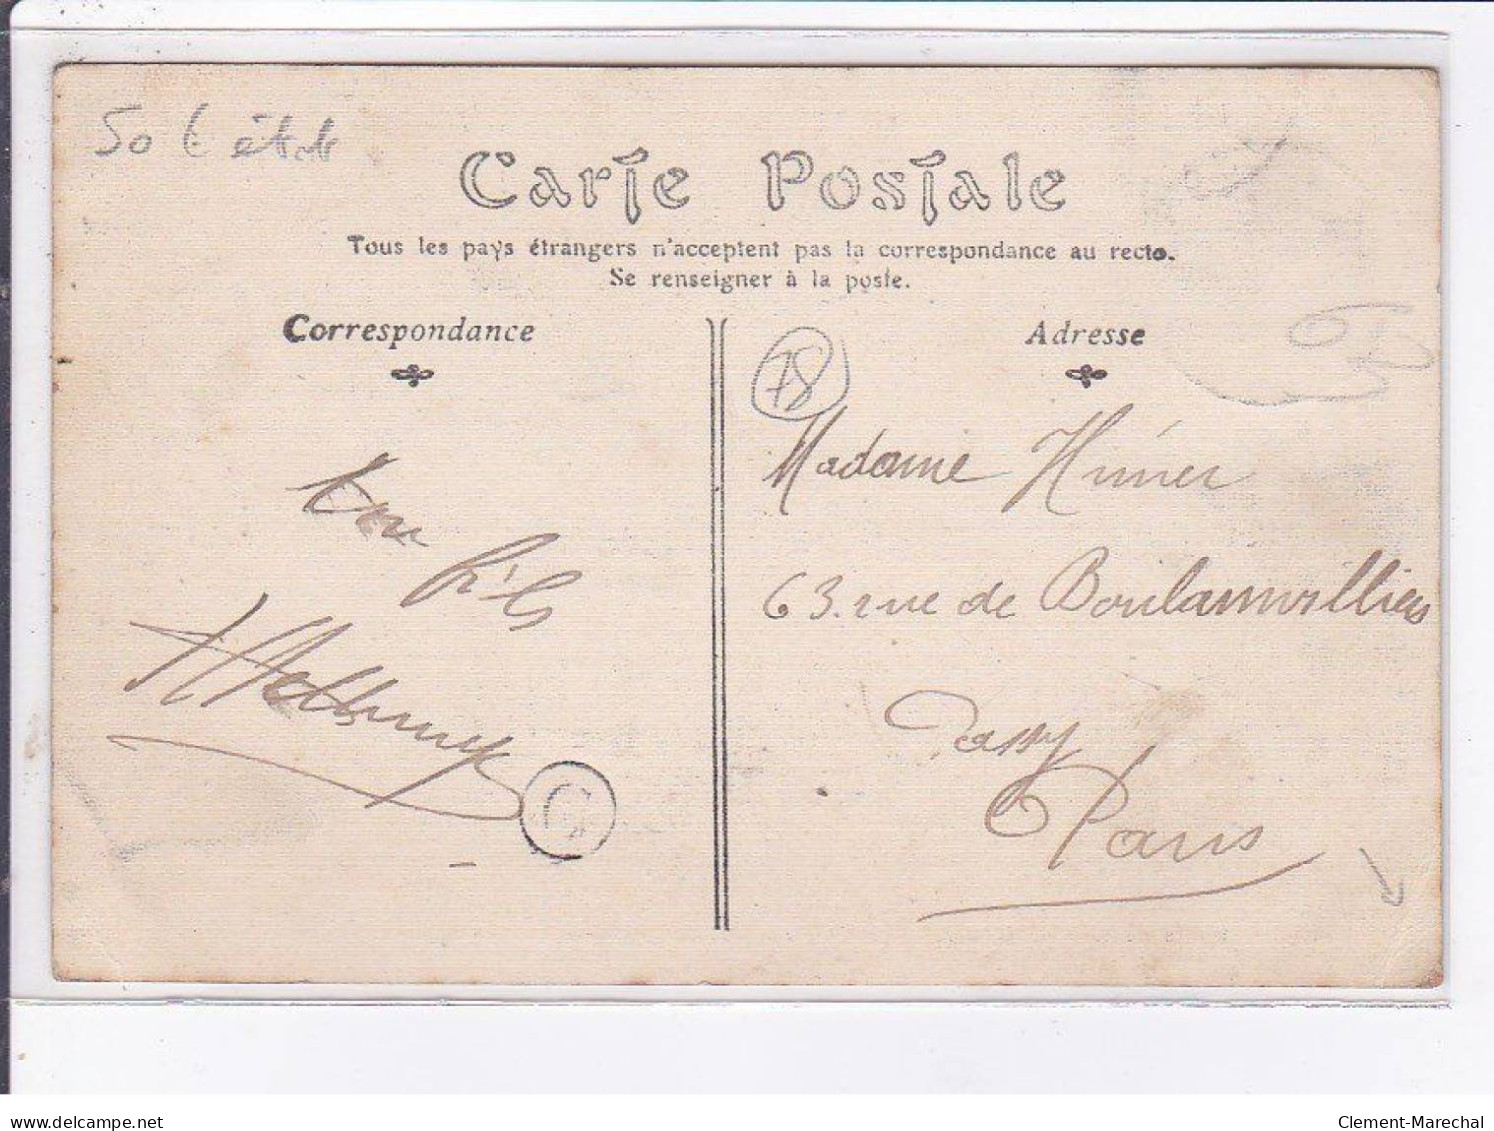 50 € état
Carte Postale
Tous les pays étrangers n'acceptent pas la correspondance au recto.
Se renseigner à la poste.
Correspondance
Adresse
78
Madame Hüner
63. rue de Boulainvilliers
Passy
Paris
fils
G
delcampe.net
Clement-Marechal